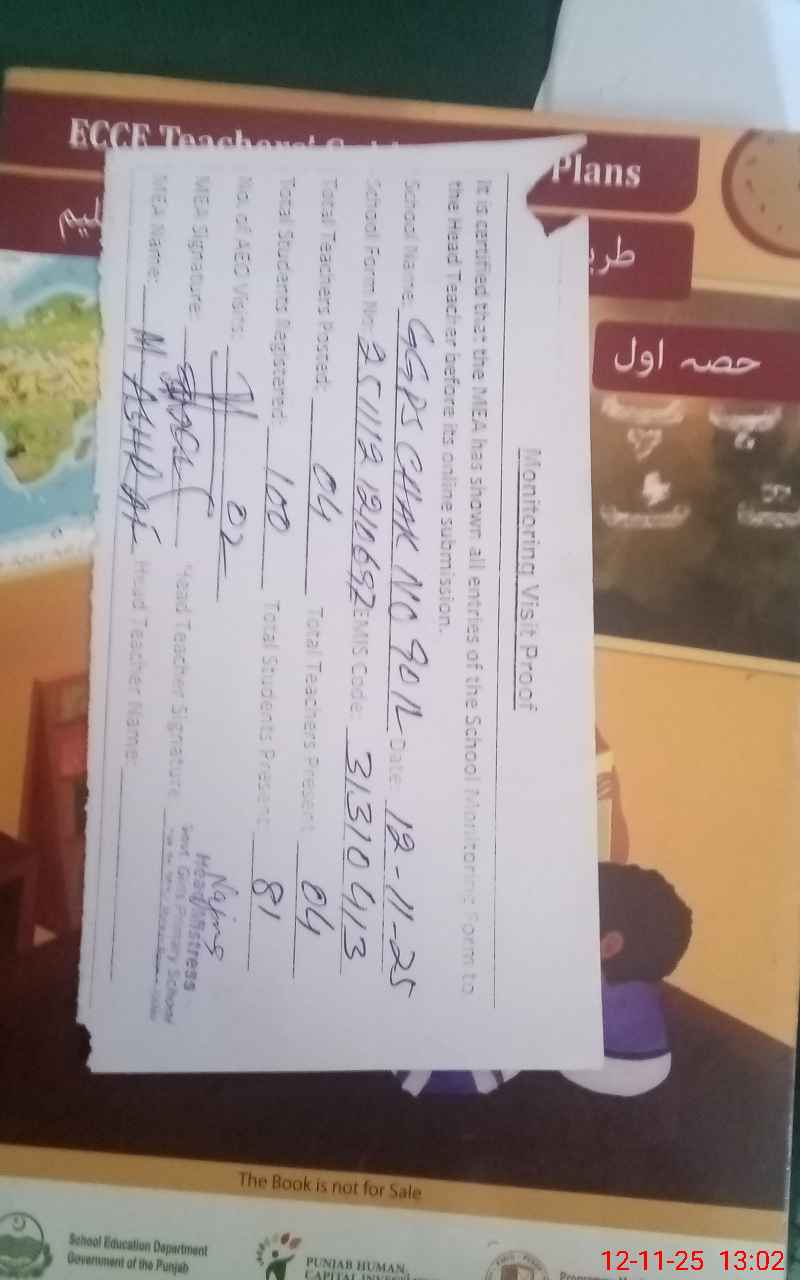 ECCE Teachers'
Plans
حصہ اول
Monitoring Visit Proof
It is certified that the MEA has shown all entries of the School Monitoring Form to
the Head Teacher before its online submission.
School Name: GGPS CHAK NO 90 Date: 12-11-25
School Form No: EMIS Code: 31310413
Total Teachers Posted: 04 Total Teachers Present: 04
Total Students Registered: 100 Total Students Present: 81
No. of AEO Visits: 02
MEA Signature: Head Teacher Signature:
Head Mistress
Govt. Girls Primary School
MEA Name: M ASHRAF Head Teacher Name:
The Book is not for Sale
School Education Department
Government of the Punjab
PUNJAB HUMAN
CAPITAL
12-11-25 13:02